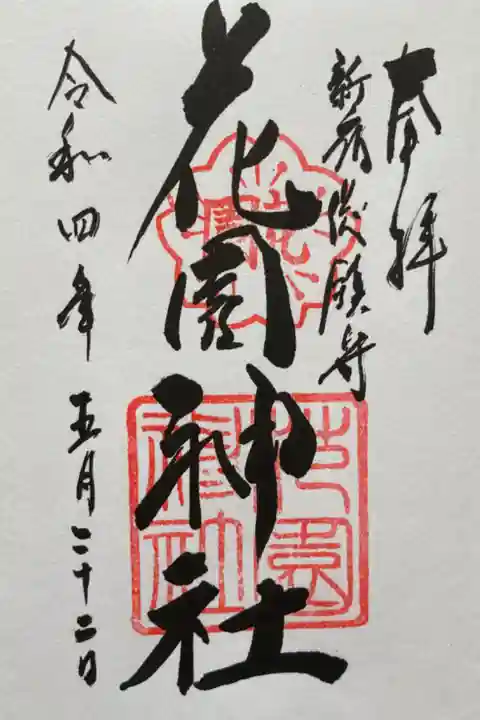 奉拝
新宿総鎮守
花園神社
令和四年五月二十二日
花園
神社